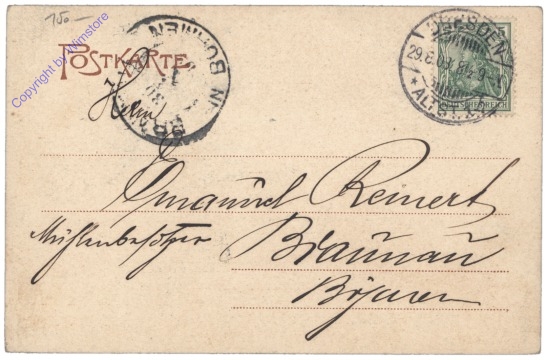 150.-
Copyright by Wimstore
POSTKARTE
IN BÖHMEN
DRESDEN
29.6.
*ALTST.
DEUTSCHES REICH
Herrn
Emanuel Reinert
Mühlenbesitzer
Braunau
Böhmen